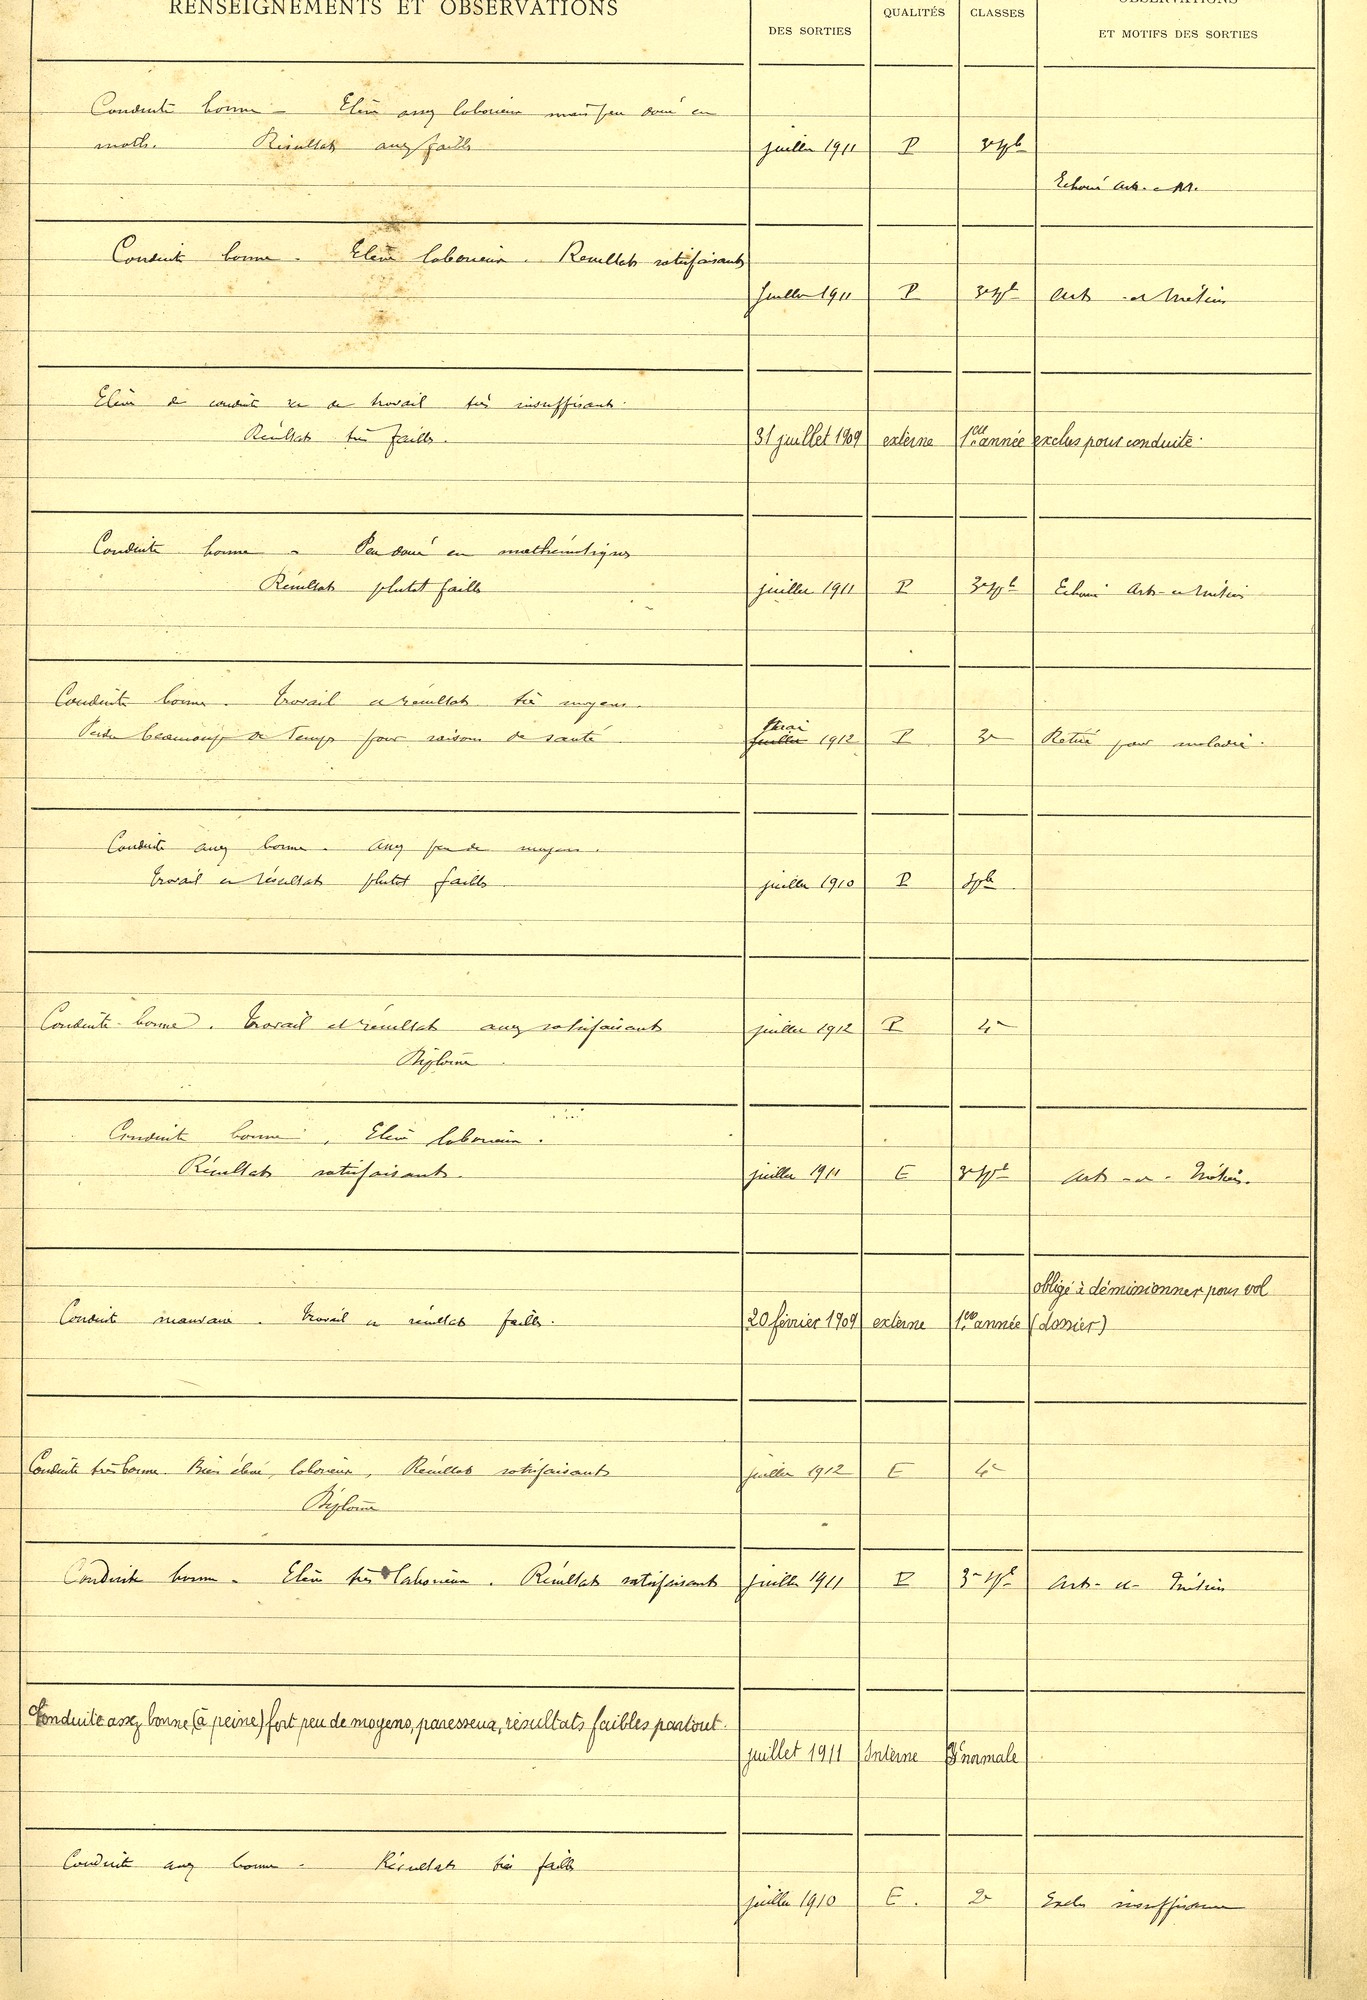 RENSEIGNEMENTS ET OBSERVATIONS
DES SORTIES
QUALITÉS
CLASSES
OBSERVATIONS
ET MOTIFS DES SORTIES
Conduite bonne - Elève assez laborieux mais peu doué en
math. Résultats assez faibles
juillet 1911 P 3e Sple
Echoué Arts et M.
Conduite bonne - Elève laborieux. Résultats satisfaisants
Juillet 1911 P 3e Sple Arts et Métiers
Elève de conduite et de travail très insuffisants.
Résultats très faibles.
31 juillet 1909 externe 1ère année exclus pour conduite.
Conduite bonne - Peu doué en mathématiques
Résultats plutôt faibles
juillet 1911 P 3e Sple Echoué Arts et Métiers
Conduite bonne. Travail et résultats très moyens.
Perdu beaucoup de temps pour raisons de santé
Mai
juillet 1912 P 3e Retiré pour maladie.
Conduite assez bonne. Assez peu de moyens.
Travail et résultats plutôt faibles
juillet 1910 P Sple
Conduite bonne. Travail et résultats assez satisfaisants
juillet 1912 P 4e
Diplôme
Conduite bonne, Elève laborieux.
Résultats satisfaisants.
juillet 1911 E 3e Sple Arts et Métiers.
obligé à démissionner pour vol
Conduite mauvaise. Travail et résultats faibles.
20 février 1909 externe 1ère année (dossier)
Conduite très bonne. Bien élevé, laborieux, Résultats satisfaisants
juillet 1912 E 4e
Diplôme
Conduite bonne - Elève très laborieux. Résultats satisfaisants
juillet 1911 P 3e Sple Arts et Métiers
Conduite assez bonne (à peine) fort peu de moyens, paresseux, résultats faibles partout.
juillet 1911 Interne 3e normale
Conduite assez bonne - Résultats très faibles
juillet 1910 E. 2e Exclu insuffisance